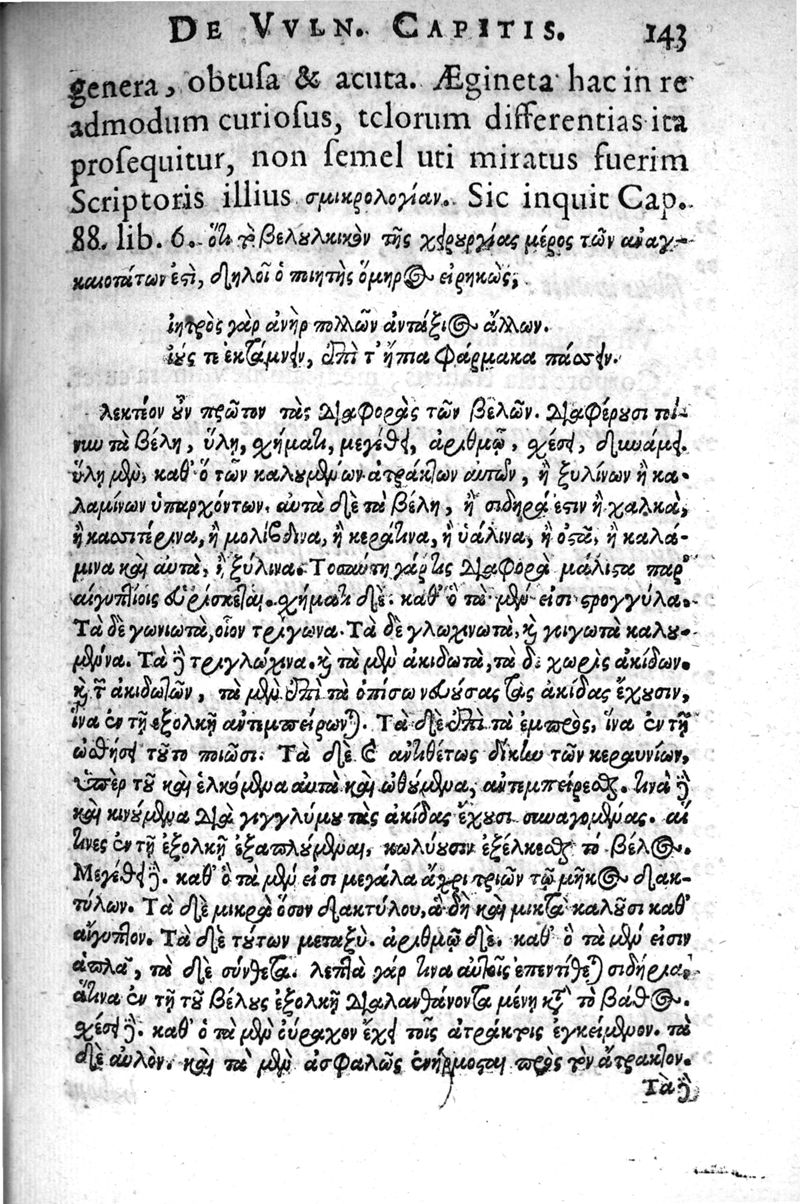 DE VVLN. CAPITIS. 143
genera, obtuſa & acuta. Ægineta hac in re
admodum curioſus, telorum differentias ita
proſequitur, non ſemel uti miratus fuerim
Scriptoris illius σμικρολογίαν. Sic inquit Cap.
88. lib. 6. ὅτι τὸ βελουλκικὸν τῆς χειρουργίας μέρος τῶν ἀναγ-
καιοτάτων ἐστὶ, δηλοῖ ὁ ποιητὴς ὅμηρος εἰρηκὼς,
ἰητρὸς γὰρ ἀνὴρ πολλῶν ἀντάξιος ἄλλων.
ἰούς τ' ἐκτάμνειν, ἐπὶ τ' ἤπια φάρμακα πάσσειν.
λεκτέον οὖν πρῶτον τὰς διαφορὰς τῶν βελῶν. διαφέρουσι τοί-
νυν τὰ βέλη, ὕλῃ, σχήματι, μεγέθει, ἀριθμῷ, σχέσει, δυνάμει.
ὕλῃ μὲν, καθ' ὅ τῶν καλουμένων ἀτράκτων αὐτῶν, ἢ ξυλίνων ἢ κα-
λαμίνων ὑπαρχόντων. αὐτὰ δὲ τὰ βέλη, ἢ σιδηρά ἐστιν ἢ χαλκᾶ,
ἢ κασσιτέρινα, ἢ μολίβδινα, ἢ κεράτινα, ἢ ὑάλινα, ἢ ὀστᾶ, ἢ καλά-
μινα καὶ αὐτὰ, ἢ ξύλινα. Τοσαύτη γάρ τις διαφορὰ μάλιστα παρ'
αἰγυπτίοις εὑρίσκεται. σχήματι δὲ. καθ' ὃ τὰ μὲν εἰσι στρογγύλα.
Τὰ δὲ γωνιωτὰ, οἷον τρίγωνα. Τὰ δὲ γλωχινωτὰ, καὶ γιγωτὰ καλου-
μένα. Τὰ δὲ τριγλώχινα. καὶ τὰ μὲν ἀκιδωτὰ, τὰ δὲ χωρὶς ἀκίδων.
καὶ τῶν ἀκιδωτῶν, τὰ μὲν ἐπὶ τὰ ὀπίσω νευούσας τὰς ἀκίδας ἔχουσιν,
ἵνα ἐν τῇ ἐξολκῇ ἀντεμπείρωνται. Τὰ δὲ ἐπὶ τὰ ἐμπρὸς, ἵνα ἐν τῇ
ὠθήσει τοῦτο ποιῶσι. Τὰ δὲ καὶ ἀντιθέτως δίκην τῶν κεραυνίων,
ὑπὲρ τοῦ καὶ ἑλκόμενα αὐτὰ καὶ ὠθούμενα, ἀντεμπείρεσθαι. τινὰ δὲ
καὶ κινούμενα διὰ γιγγλύμου τὰς ἀκίδας ἔχουσι συναγομένας. αἵ
τινες ἐν τῇ ἐξολκῇ ἐξαπλούμεναι, κωλύουσιν ἐξέλκεσθαι τὸ βέλος.
Μεγέθει δὲ. καθ' ὃ τὰ μὲν εἰσι μεγάλα ἄχρι τριῶν τῷ μῆκος δακ-
τύλων. Τὰ δὲ μικρὰ ὅσον δακτύλου, ἃ δὴ καὶ μικτὰ καλοῦσι καθ'
αἴγυπτον. Τὰ δὲ τούτων μεταξὺ. ἀριθμῷ δὲ. καθ' ὃ τὰ μὲν εἰσιν
ἁπλᾶ, τὰ δὲ σύνθετα. λεπτὰ γάρ τινα αὐτοῖς ἐπεντίθεται σιδήρια.
ἅτινα ἐν τῇ τοῦ βέλους ἐξολκῇ διαλανθάνοντα μένει κατὰ τὸ βάθος.
σχέσει δὲ. καθ' ὁ τὰ μὲν οὐραχον ἔχει τοῖς ἀτράκτοις ἐγκείμενον. τὰ
δὲ αὐλὸν. καὶ τὰ μὲν ἀσφαλῶς ἐνήρμοσται πρὸς τὸν ἄτρακτον.
Τὰ δὲ